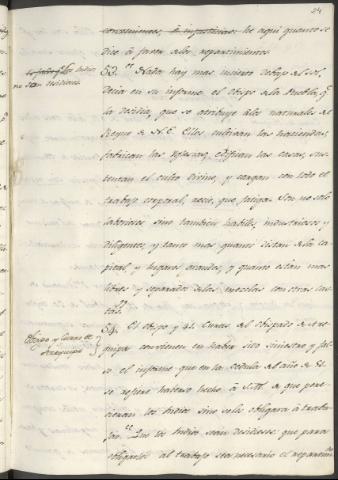 24
convenientes, è importunas: he aqui quanto se
dice à favor de los repartimientos.
Es falso q.e los Indios
no sean desidiosos
53. Nada hay mas incierto debajo del sol,
decia en su informe el obispo de la Puebla, q.e
la desidia, que se atribuye a los naturales del
Reyno de N.E. Ellos cultivan las haciendas,
fabrican las iglesias, edifican las casas, sus-
tentan el culto divino, y cargan con todo el
trabajo corporal, recio, que fatiga. Son no solo
laboriosos sino tambien habiles, industriosos y
diligentes, y tanto mas quanto distan de la ca-
pital, y lugares grandes, y quanto están mas
libres y separados de las mezclas con otras cas-
tas.
Obispo y Curas de
Arequipa
54. El obispo y 41 Curas del Obispado de Are-
quipa convienen en haber sido siniestro y fal-
so el informe que en la cedula del año de 81
se refiere haberse hecho à S.M. de que pere-
cieran los Indios sino se les obligara à traba-
jar. Que los Indios sean desidiosos que para
obligarlos al trabajo sea necesario el repartim.to